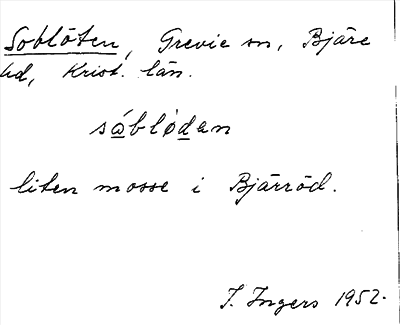 Soblöten, Grevie sn, Bjäre
hd, Krist. län.
sáblö́dan
liten mosse i Bjärröd.
I. Ingers 1952.